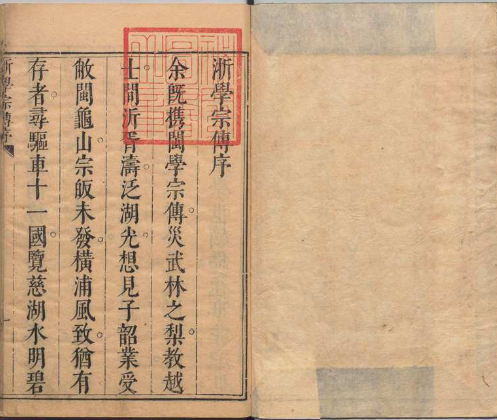 浙學宗傳序
余旣携閩學宗傳災武林之梨教越
士間泝胥濤泛湖光想見子韶業受
敝閩龜山宗飯未發橫浦風致猶有
存者尋驅車十一國覽慈湖水明碧
浙學宗傳序